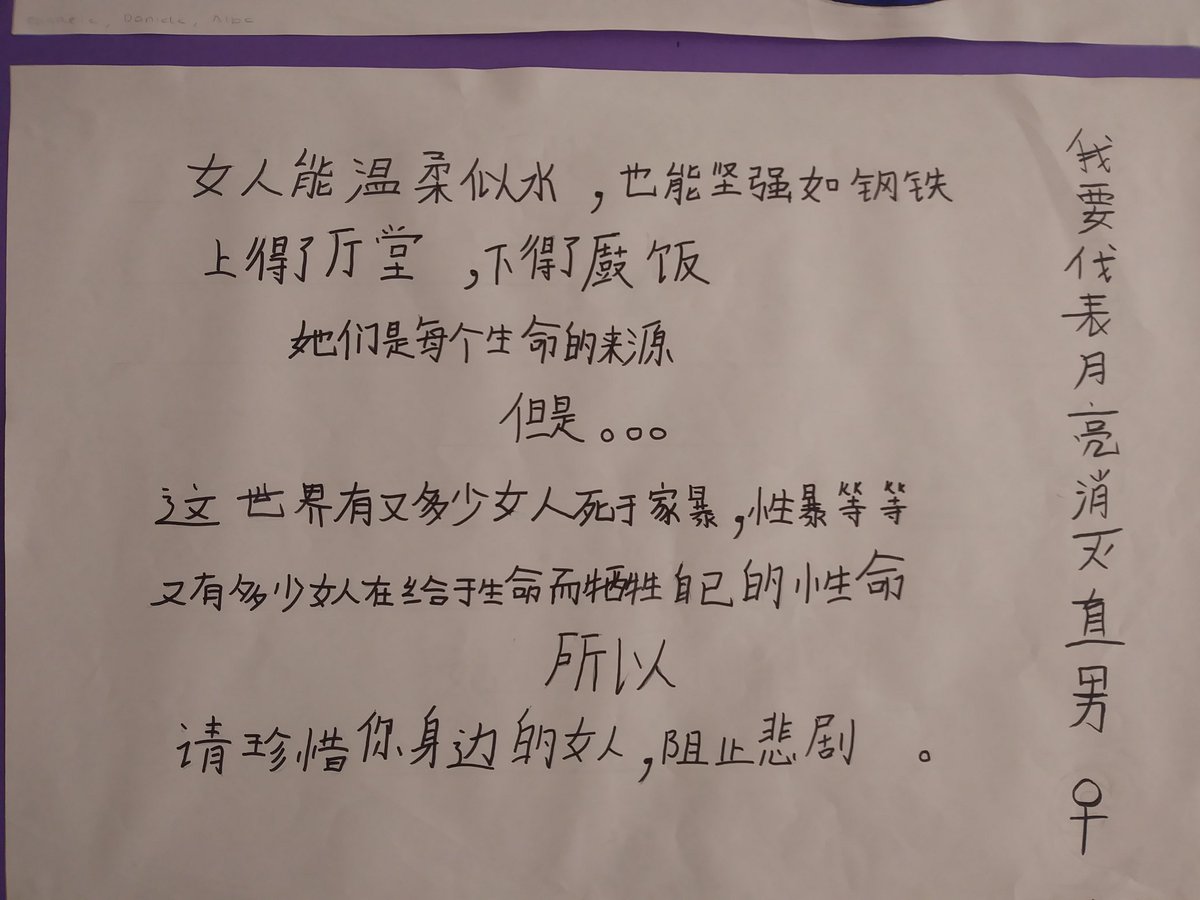 Daniela, Alba
女人能温柔似水，也能坚强如钢铁
上得了厅堂，下得了厨饭
她们是每个生命的来源
但是。。。
这世界有又多少女人死于家暴，性暴等等
又有多少女人在给于生命而牺牲自己的性命
所以
请珍惜你身边的女人，阻止悲剧。
我要代表月亮消灭直男♀